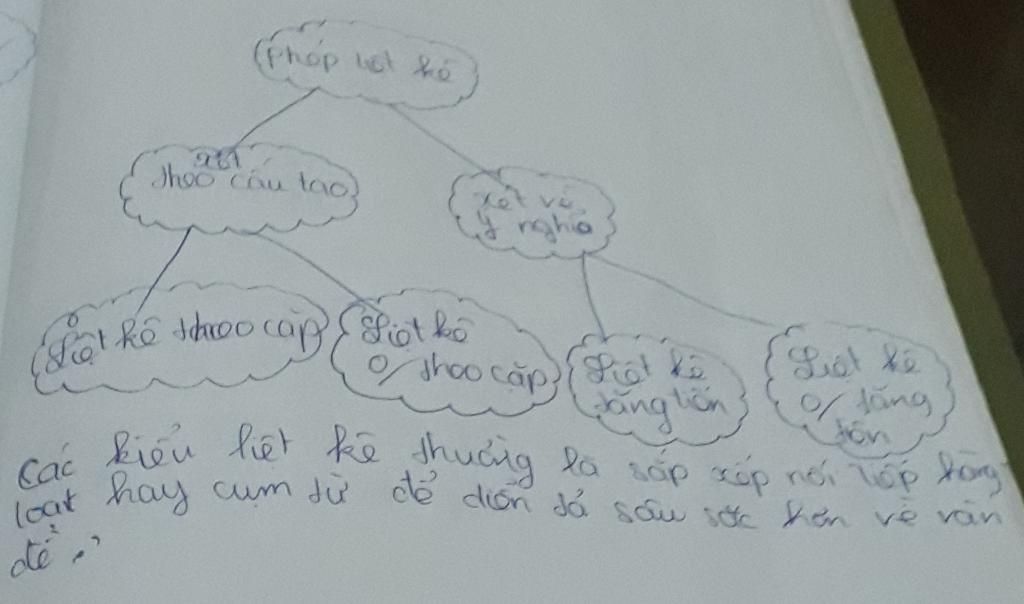 Phép liệt kê
xét
theo cấu tạo
xét về
ý nghĩa
Liệt kê theo cặp
Liệt kê
0/ theo cặp
Liệt kê
tăng tiến
Liệt kê
0/ tăng
tiến
Các kiểu liệt kê thường là sắp xếp nối tiếp hàng
loạt hay cụm từ để diễn tả sâu sắc hơn về vấn
đề